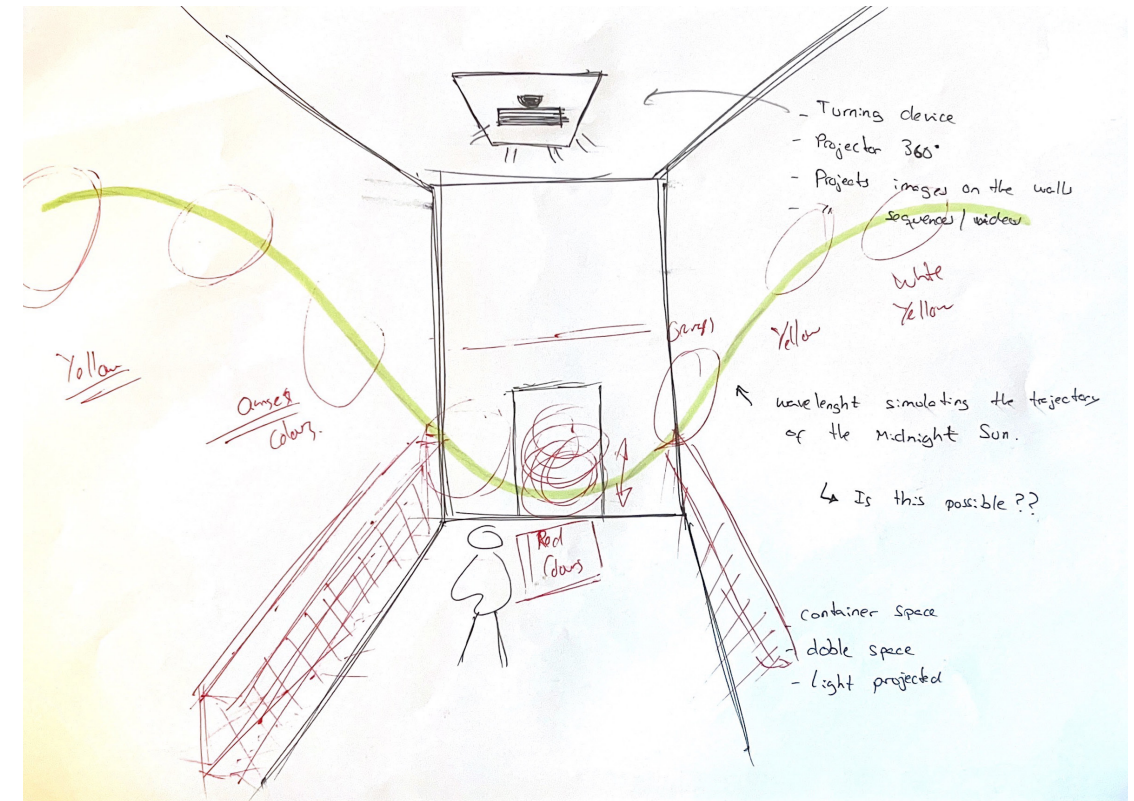 - Turning device
- Projector 360°
- Projects images on the walls
- sequences / videos
White
Yellow
Yellow
Yellow
Colors.
wavelenght simulating the trajectory
of the Midnight Sun.
↳ Is this possible ??
Red
Colours
- container space
- doble space
- light projected